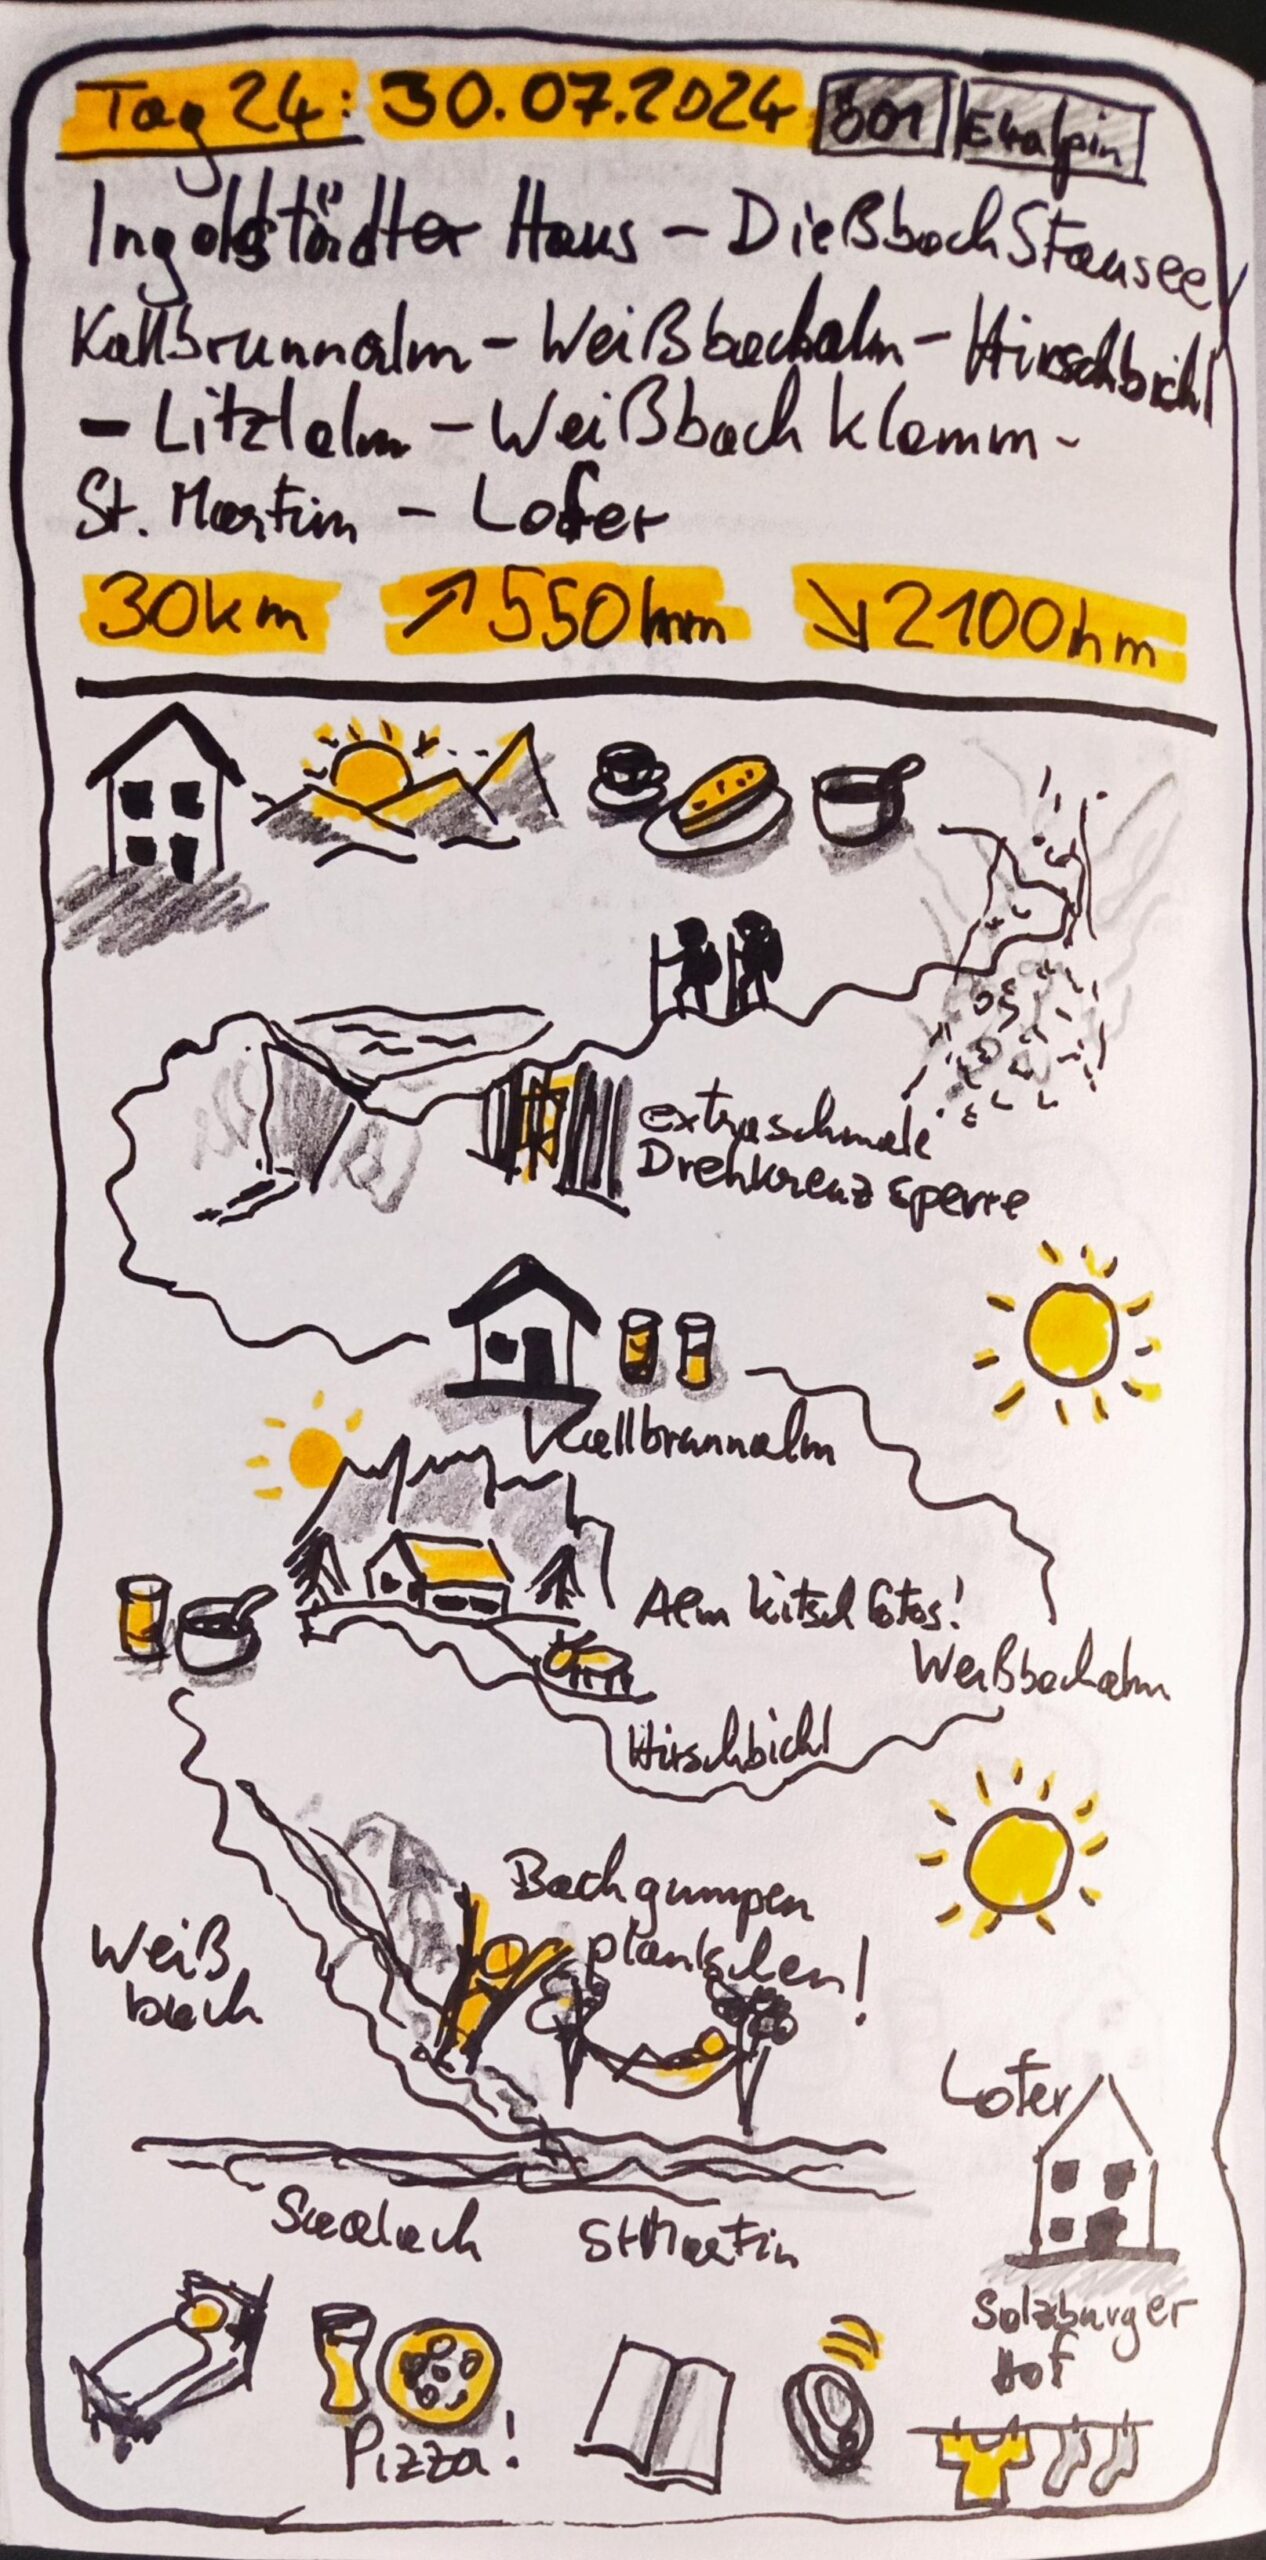 Tag 24: 30.07.2024 Ö01 E4alpin
Ingolstädter Haus - Dießbach Stausee
Kallbrunnalm - Weißbachalm - Hirschbichl
- Litzlalm - Weißbach klamm -
St. Martin - Lofer
30km ↗550hm ↘2100hm
extraschmale
Drehkreuzsperre
Kallbrunnalm
Alm kitsch fotos!
Weißbachalm
Hirschbichl
Bachgumpen
planschen!
Weiß
bach
Lofer
Saalach St Martin
Salzburger
Hof
Pizza!